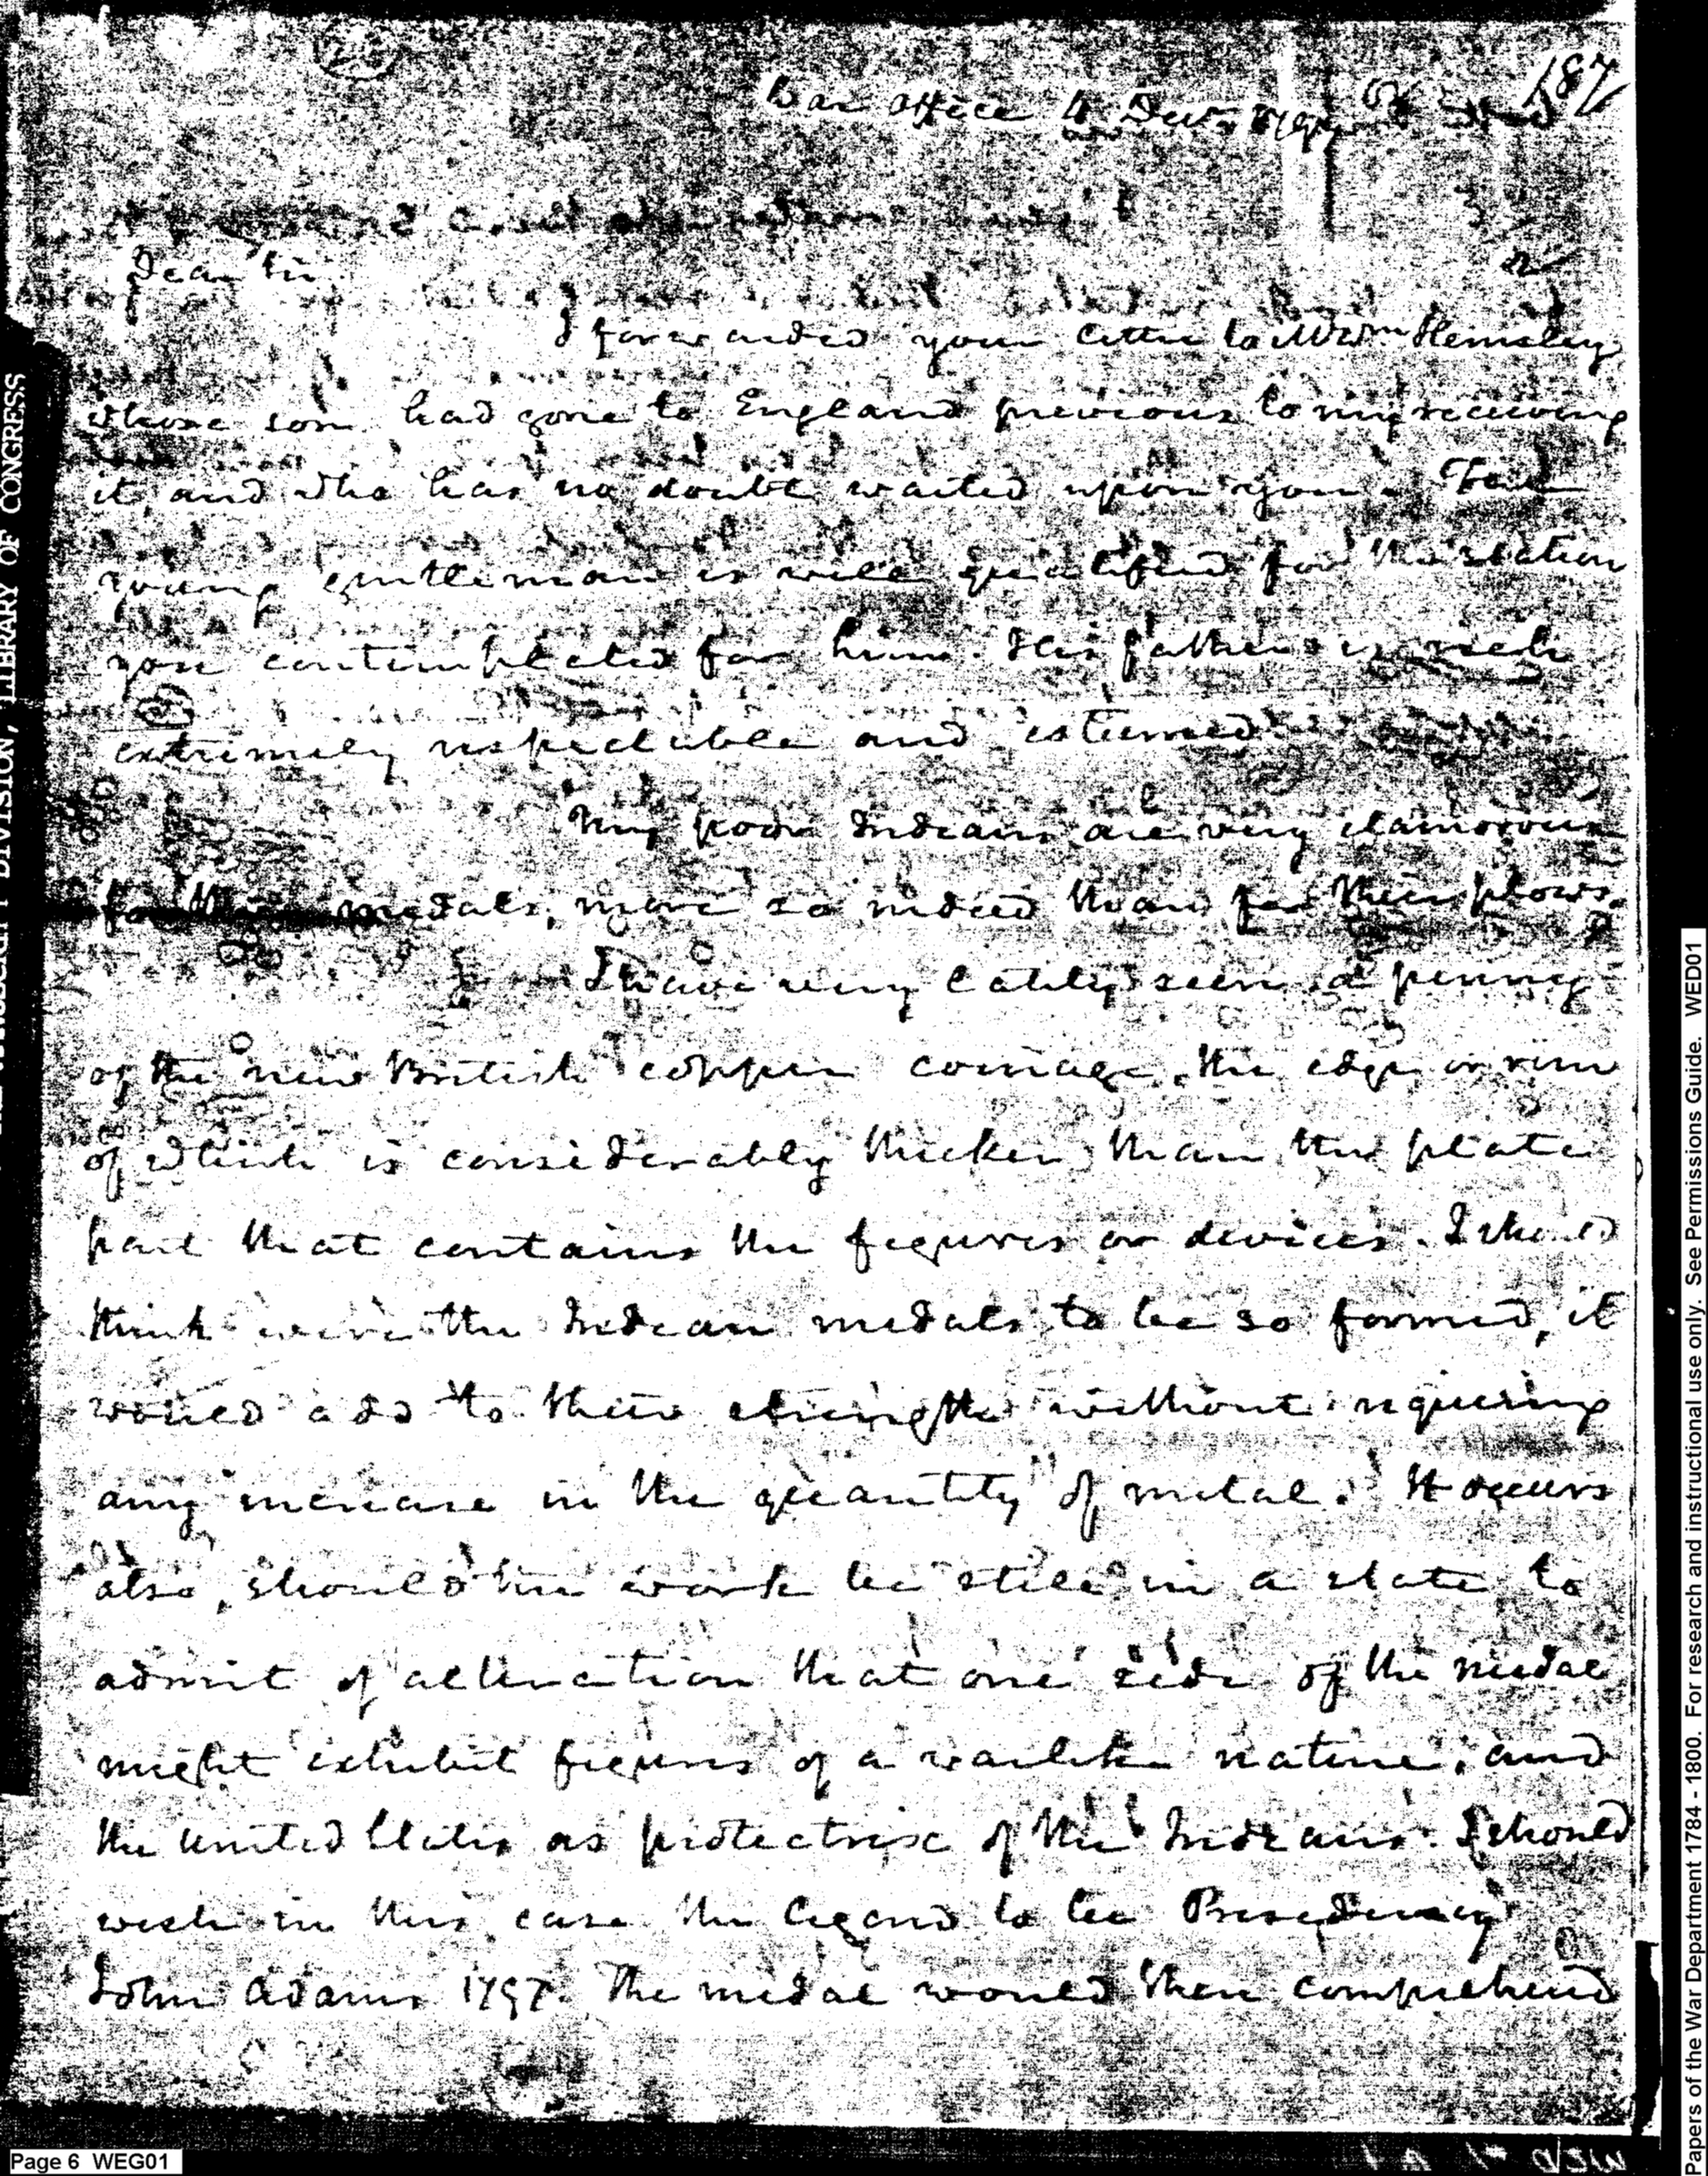 187
War Office 4 Decr. 1797
Dear Sir
I forwarded your letter to Wm. Hemsley
whose son had gone to England previous to my receiving
it, and who has no doubt waited upon you. The
young gentleman is well qualified for the station
you contemplated for him. His father is rich
extremely respectable and esteemed.
My poor Indians are very clamorous
for their medals, more so indeed than for their plows.
I have very lately seen a penny
of the new British copper coinage, the edge or rim
of which is considerably thicker than the plate
part that contains the figures or devices. I should
think were the Indian medals to be so formed, it
would add to their strength without requiring
any increase in the quantity of metal. It occurs
also, should the work be still in a state to
admit of alteration that one side of the medal
might exhibit figures of a warlike nature, and
the United States as protectrise of the Indians. I should
wish in this case the legend to be Presidency
John Adams 1797. The medal would then comprehend
LIBRARY OF CONGRESS
DIVISION,
Page 6 WEG01
Papers of the War Department 1784 - 1800. For research and instructional use only. See Permissions Guide. WED01